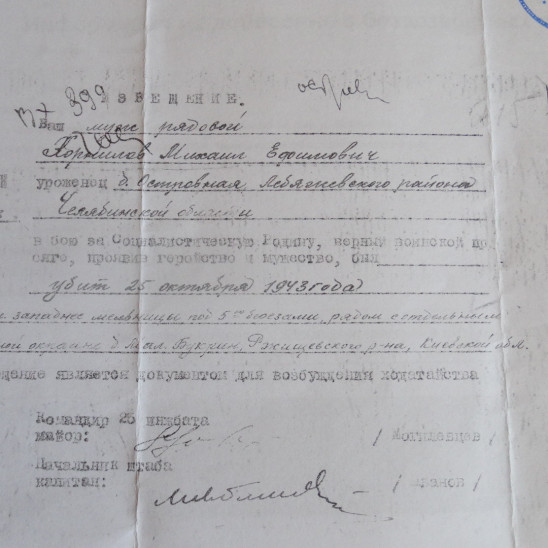 399
ЗВЕЩЕНИЕ.
Ваш муж рядовой
Михаил Ефимович
уроженец д. Островная Лебяжевского района
Челябинской области
в бою за Социалистическую Родину, верный воинской при
сяге, проявив геройство и мужество, был
убит 25 октября 1943 года
западнее мельницы под 5ю березами, рядом с отдельным
окраине д. Мал. Букрин, Ржищевского р-на, Киевской обл.
щение является документом для возбуждения ходатайства
Командир 25 инжбата
майор: / Могилевцев /
Начальник штаба
капитан: / Иванов /